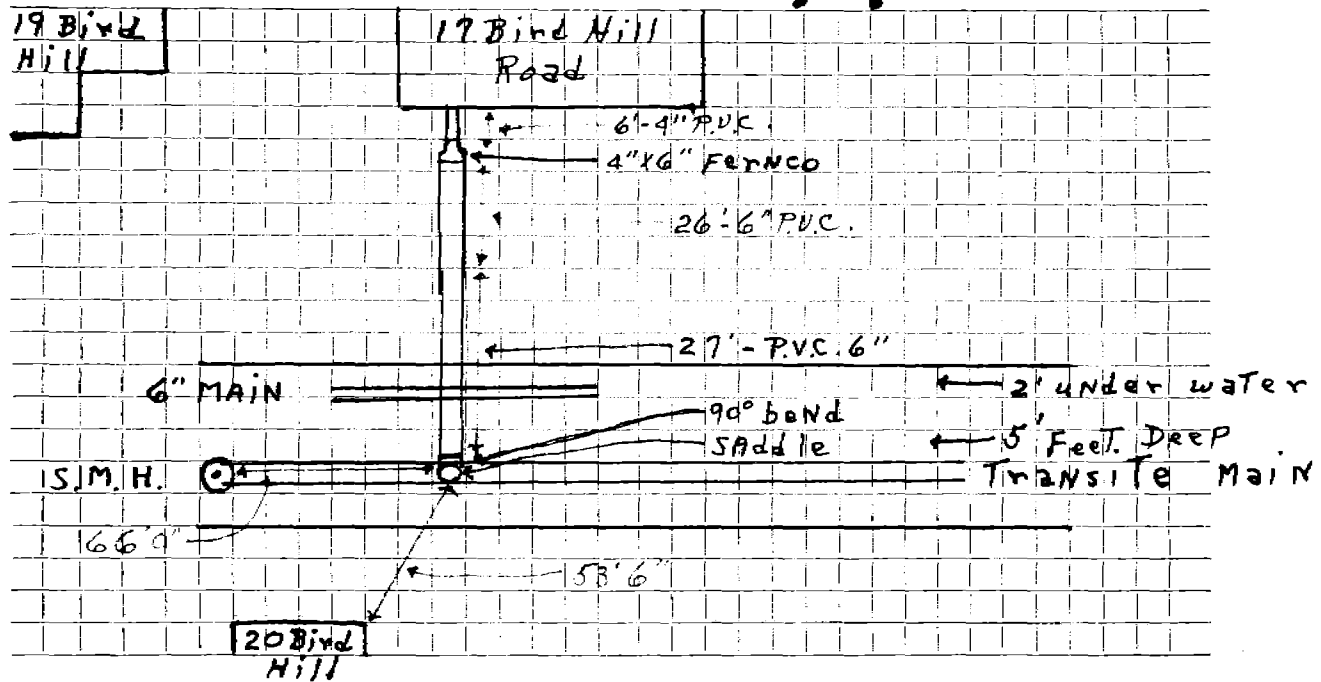 19 Bird
Hill
17 Bird Hill
Road
6'-4" P.V.C.
4"X6" FerNco
26'-6" P.V.C.
27'- P.V.C. 6"
6" MAiN
2' uNder waTer
90° beNd
SAddle
5' FeeT. Deep
S.M.H.
TraNsiTe MaiN
66'0"
53'6"
20 Bird
Hill